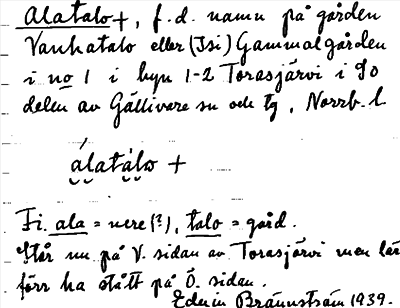 Alatalo +, f.d. namn på gården
Vanhatalo eller (Isi) Gammalgården
i no 1 i byn 1-2 Torasjärvi i So
delen av Gällivare sn och tg, Norrb. l.
álatàlo +
Fi. ala = nere (?), talo = gård.
Står nu på V. sidan av Torasjärvi men lär
förr ha stått på Ö. sidan.
Edvin Brännström 1939.